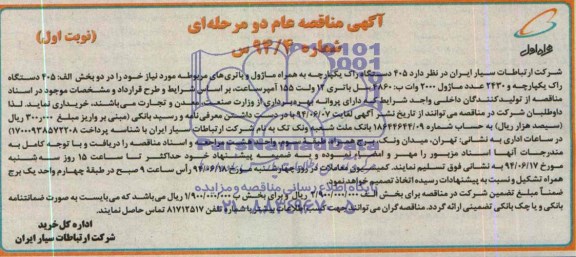 آگهی مناقصه عام دو مرحله‌ای
شماره ۹۴/۴۰ س
(نوبت اول)
همراه اول
شرکت ارتباطات سیار ایران در نظر دارد ۴۰۵ دستگاه راک یکپارچه به همراه ماژول و باتری‌های مربوطه مورد نیاز خود را در دو بخش الف: ۴۰۵ دستگاه
راک یکپارچه و ۲۴۳۰ عدد ماژول ۲۰۰۰ وات ب: ۴۸۶۰ باتری ۱۲ ولت ۱۵۵ آمپر ساعت، بر اساس شرایط و طرح قرارداد و مشخصات موجود در اسناد
مناقصه از تولیدکنندگان داخلی واجد شرایط که دارای پروانه بهره‌برداری از وزارت صنعت، معدن و تجارت می‌باشند، خریداری نماید. لذا
داوطلبان شرکت در مناقصه می‌توانند از تاریخ نشر آگهی لغایت ۹۴/۰۶/۰۷ با در دست داشتن معرفی نامه و رسید بانکی (مبنی بر واریز مبلغ ۳۰۰٫۰۰۰ ریال
(سیصد هزار ریال) به حساب شماره ۱۸۶۴۴۶۴۴/۰۹ بانک ملت شعبه ونک تک به نام شرکت ارتباطات سیار ایران با شناسه پرداخت ۱۷۰۰۰۹۳۸۵۷۲۲۰۸)
در ساعات اداری به نشانی: تهران، میدان ونک، و اسناد مناقصه را دریافت و با توجه کامل به
مندرجات آنها اسناد مزبور را مهر و امضاء نموده و به پیشنهاد خود حداکثر تا ساعت ۱۵ روز سه‌شنبه
مورخ ۹۴/۰۶/۱۷ به نشانی فوق تسلیم نمایند. کمیسیون معاملات در روز چهارشنبه مورخ ۹۴/۰۶/۱۸ رأس ساعت ۹ صبح در طبقه چهارم واحد یک برج
همراه تشکیل و نسبت به پیشنهادات رسیده اتخاذ تصمیم خواهد نمود.
ضمناً مبلغ تضمین شرکت در مناقصه برای بخش الف ریال و برای بخش ب ۱/۹۰۰/۰۰۰/۰۰۰ ریال می‌باشد که می‌بایست به صورت ضمانتنامه
بانکی و یا چک بانکی تضمینی ارائه گردد. مناقصه گران می‌توانند جهت کسب اطلاعات بیشتر با شماره تلفن ۸۱۷۱۲۵۱۷ تماس حاصل نمایند.
اداره کل خرید
شرکت ارتباطات سیار ایران
ParsNamadData
پایگاه اطلاع رسانی مناقصه و مزایده